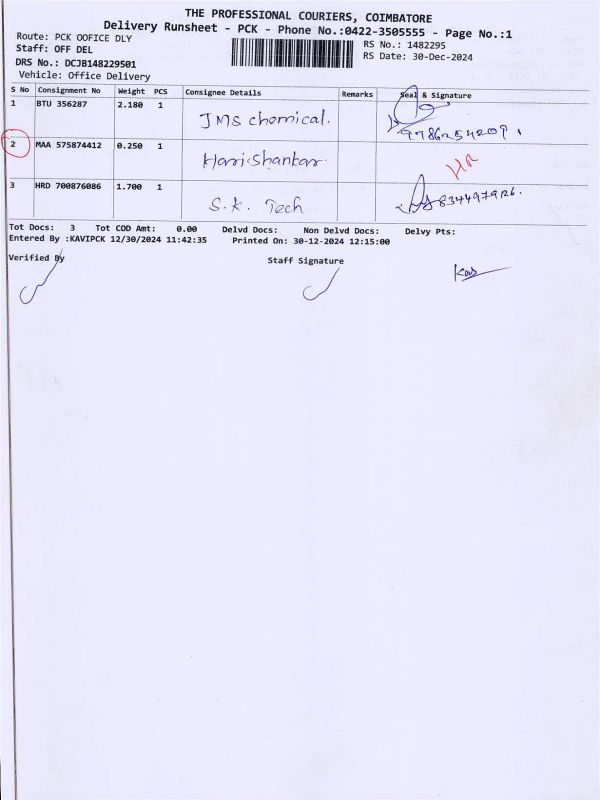 THE PROFESSIONAL COURIERS, COIMBATORE
Delivery Runsheet - PCK - Phone No.:0422-3505555 - Page No.:1
Route: PCK OOFICE DLY
RS No.: 1482295
Staff: OFF DEL
RS Date: 30-Dec-2024
DRS No.: DCJB148229501
Vehicle: Office Delivery
S No Consignment No Weight PCS Consignee Details Remarks Seal & Signature
1 BTU 356287 2.180 1 JMS chemical. 9786254209.
2 MAA 575874412 0.250 1 Harishankar HR
3 HRD 700876086 1.700 1 S.K. Tech 8344979126.
Tot Docs: 3 Tot COD Amt: 0.00 Delvd Docs: Non Delvd Docs: Delvy Pts:
Entered By :KAVIPCK 12/30/2024 11:42:35 Printed On: 30-12-2024 12:15:00
Verified By Staff Signature